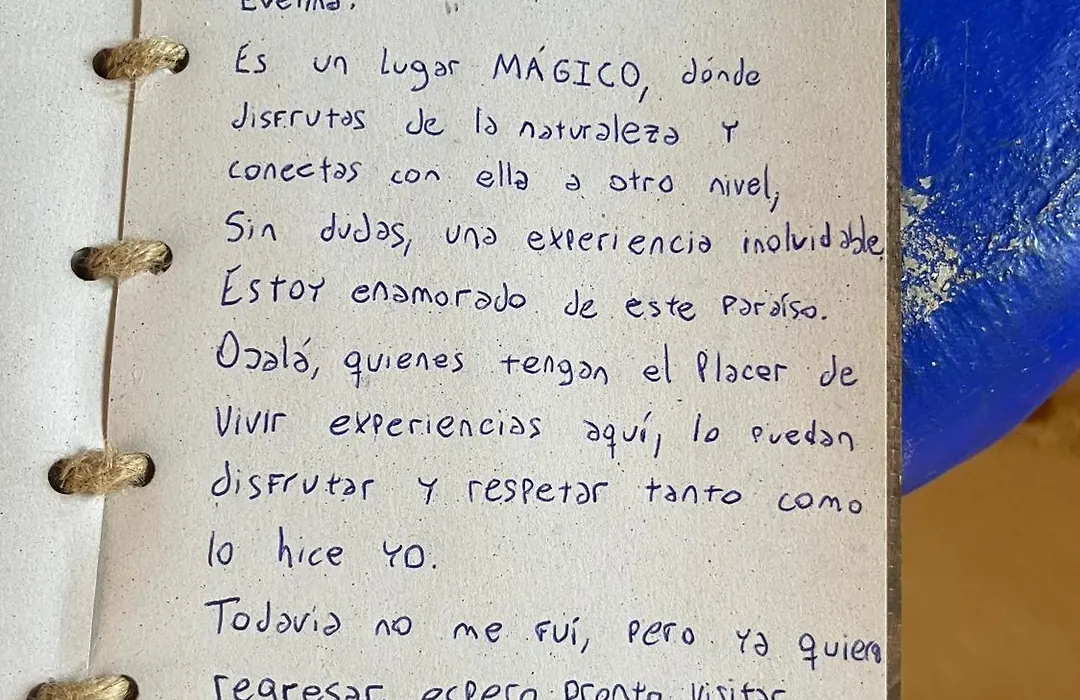 Evelina.
Es un lugar MÁGICO, dónde
disfrutas de la naturaleza y
conectas con ella a otro nivel,
Sin dudas, una experiencia inolvidable.
Estoy enamorado de este paraíso.
Ojalá, quienes tengan el placer de
vivir experiencias aquí, lo puedan
disfrutar y respetar tanto como
lo hice yo.
Todavia no me fuí, pero ya quiero
regresar, espero pronto visitar